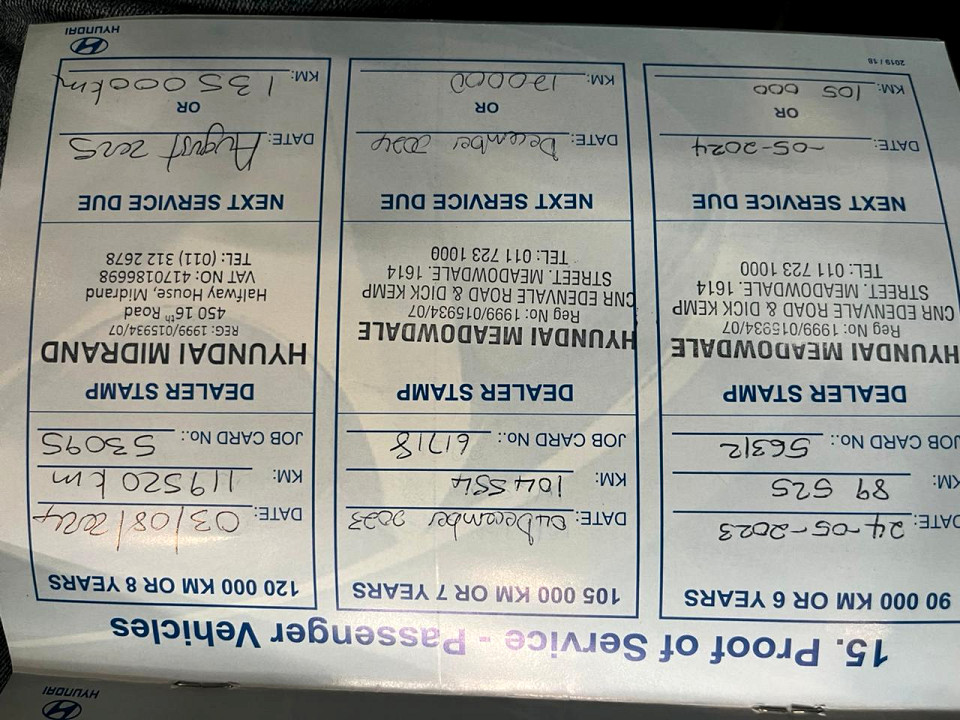 15. Proof of Service - Passenger Vehicles
90 000 KM OR 6 YEARS
DATE: 24-05-2023
KM: 89 525
JOB CARD No.: 56312
DEALER STAMP
HYUNDAI MEADOWDALE
Reg No: 1999/015934/07
CNR EDENVALE ROAD & DICK KEMP
STREET. MEADOWDALE. 1614
TEL: 011 723 1000
NEXT SERVICE DUE
DATE: -05-2024
OR
KM: 105 000
105 000 KM OR 7 YEARS
DATE: 04 December 2023
KM: 104554
JOB CARD No.: 61718
DEALER STAMP
HYUNDAI MEADOWDALE
Reg No: 1999/015934/07
CNR EDENVALE ROAD & DICK KEMP
STREET. MEADOWDALE. 1614
TEL: 011 723 1000
NEXT SERVICE DUE
DATE: December 2024
OR
KM: 120000
120 000 KM OR 8 YEARS
DATE: 03/08/2024
KM: 119520 km
JOB CARD No.: 53095
DEALER STAMP
HYUNDAI MIDRAND
REG: 1999/015934/07
450 16th Road
Halfway House, Midrand
VAT NO: 4170186698
TEL: (011) 312 2678
NEXT SERVICE DUE
DATE: August 2025
OR
KM: 135 000km
2019 / 18
HYUNDAI
HYUNDAI